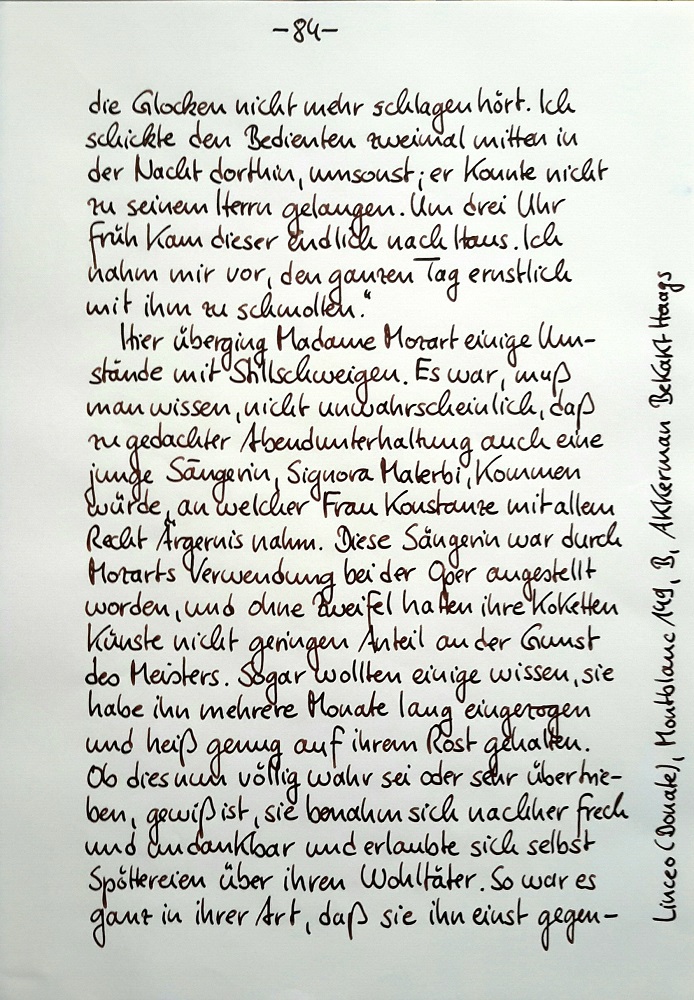 -84-
die Glocken nicht mehr schlagen hört. Ich
schickte den Bedienten zweimal mitten in
der Nacht dorthin, umsonst; er konnte nicht
zu seinem Herrn gelangen. Um drei Uhr
früh kam dieser endlich nach Haus. Ich
nahm mir vor, den ganzen Tag ernstlich
mit ihm zu schmollen."
Hier überging Madame Mozart einige Um-
stände mit Stillschweigen. Es war, muß
man wissen, nicht unwahrscheinlich, daß
zu gedachter Abendunterhaltung auch eine
junge Sängerin, Signora Malerbi, kommen
würde, an welcher Frau Konstanze mit allem
Recht Ärgernis nahm. Diese Sängerin war durch
Mozarts Verwendung bei der Oper angestellt
worden, und ohne Zweifel hatten ihre koketten
Künste nicht geringen Anteil an der Gunst
des Meisters. Sogar wollten einige wissen, sie
habe ihn mehrere Monate lang eingezogen
und heiß genug auf ihrem Rost gehalten.
Ob dies nun völlig wahr sei oder sehr übertrie-
ben, gewiß ist, sie benahm sich nachher frech
und undankbar und erlaubte sich selbst
Spöttereien über ihren Wohltäter. So war es
ganz in ihrer Art, daß sie ihn einst gegen-
Linceo (Donate), Montblanc 149, B, Akkerman Bekakt Haags